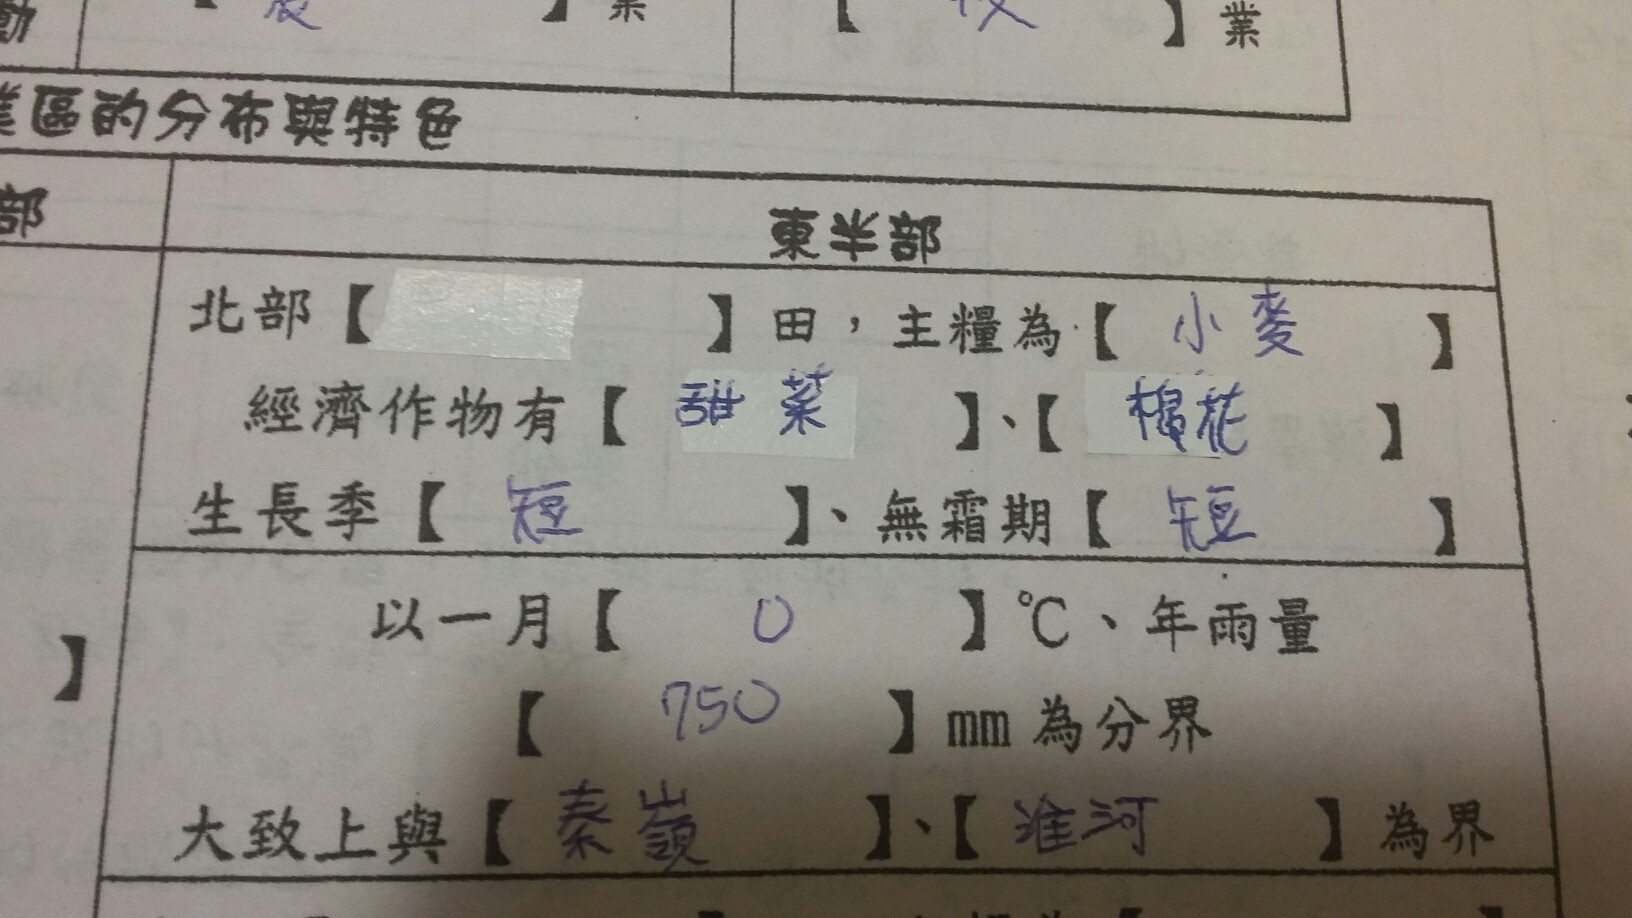 動 【 】業 【 牧 】業
業區的分布與特色
部 東半部
北部【 】田，主糧為【 小麥 】
經濟作物有【 甜菜 】、【 棉花 】
生長季【 短 】、無霜期【 短 】
以一月【 0 】℃、年雨量
【 750 】mm為分界
】
大致上與【 秦嶺 】、【 淮河 】為界